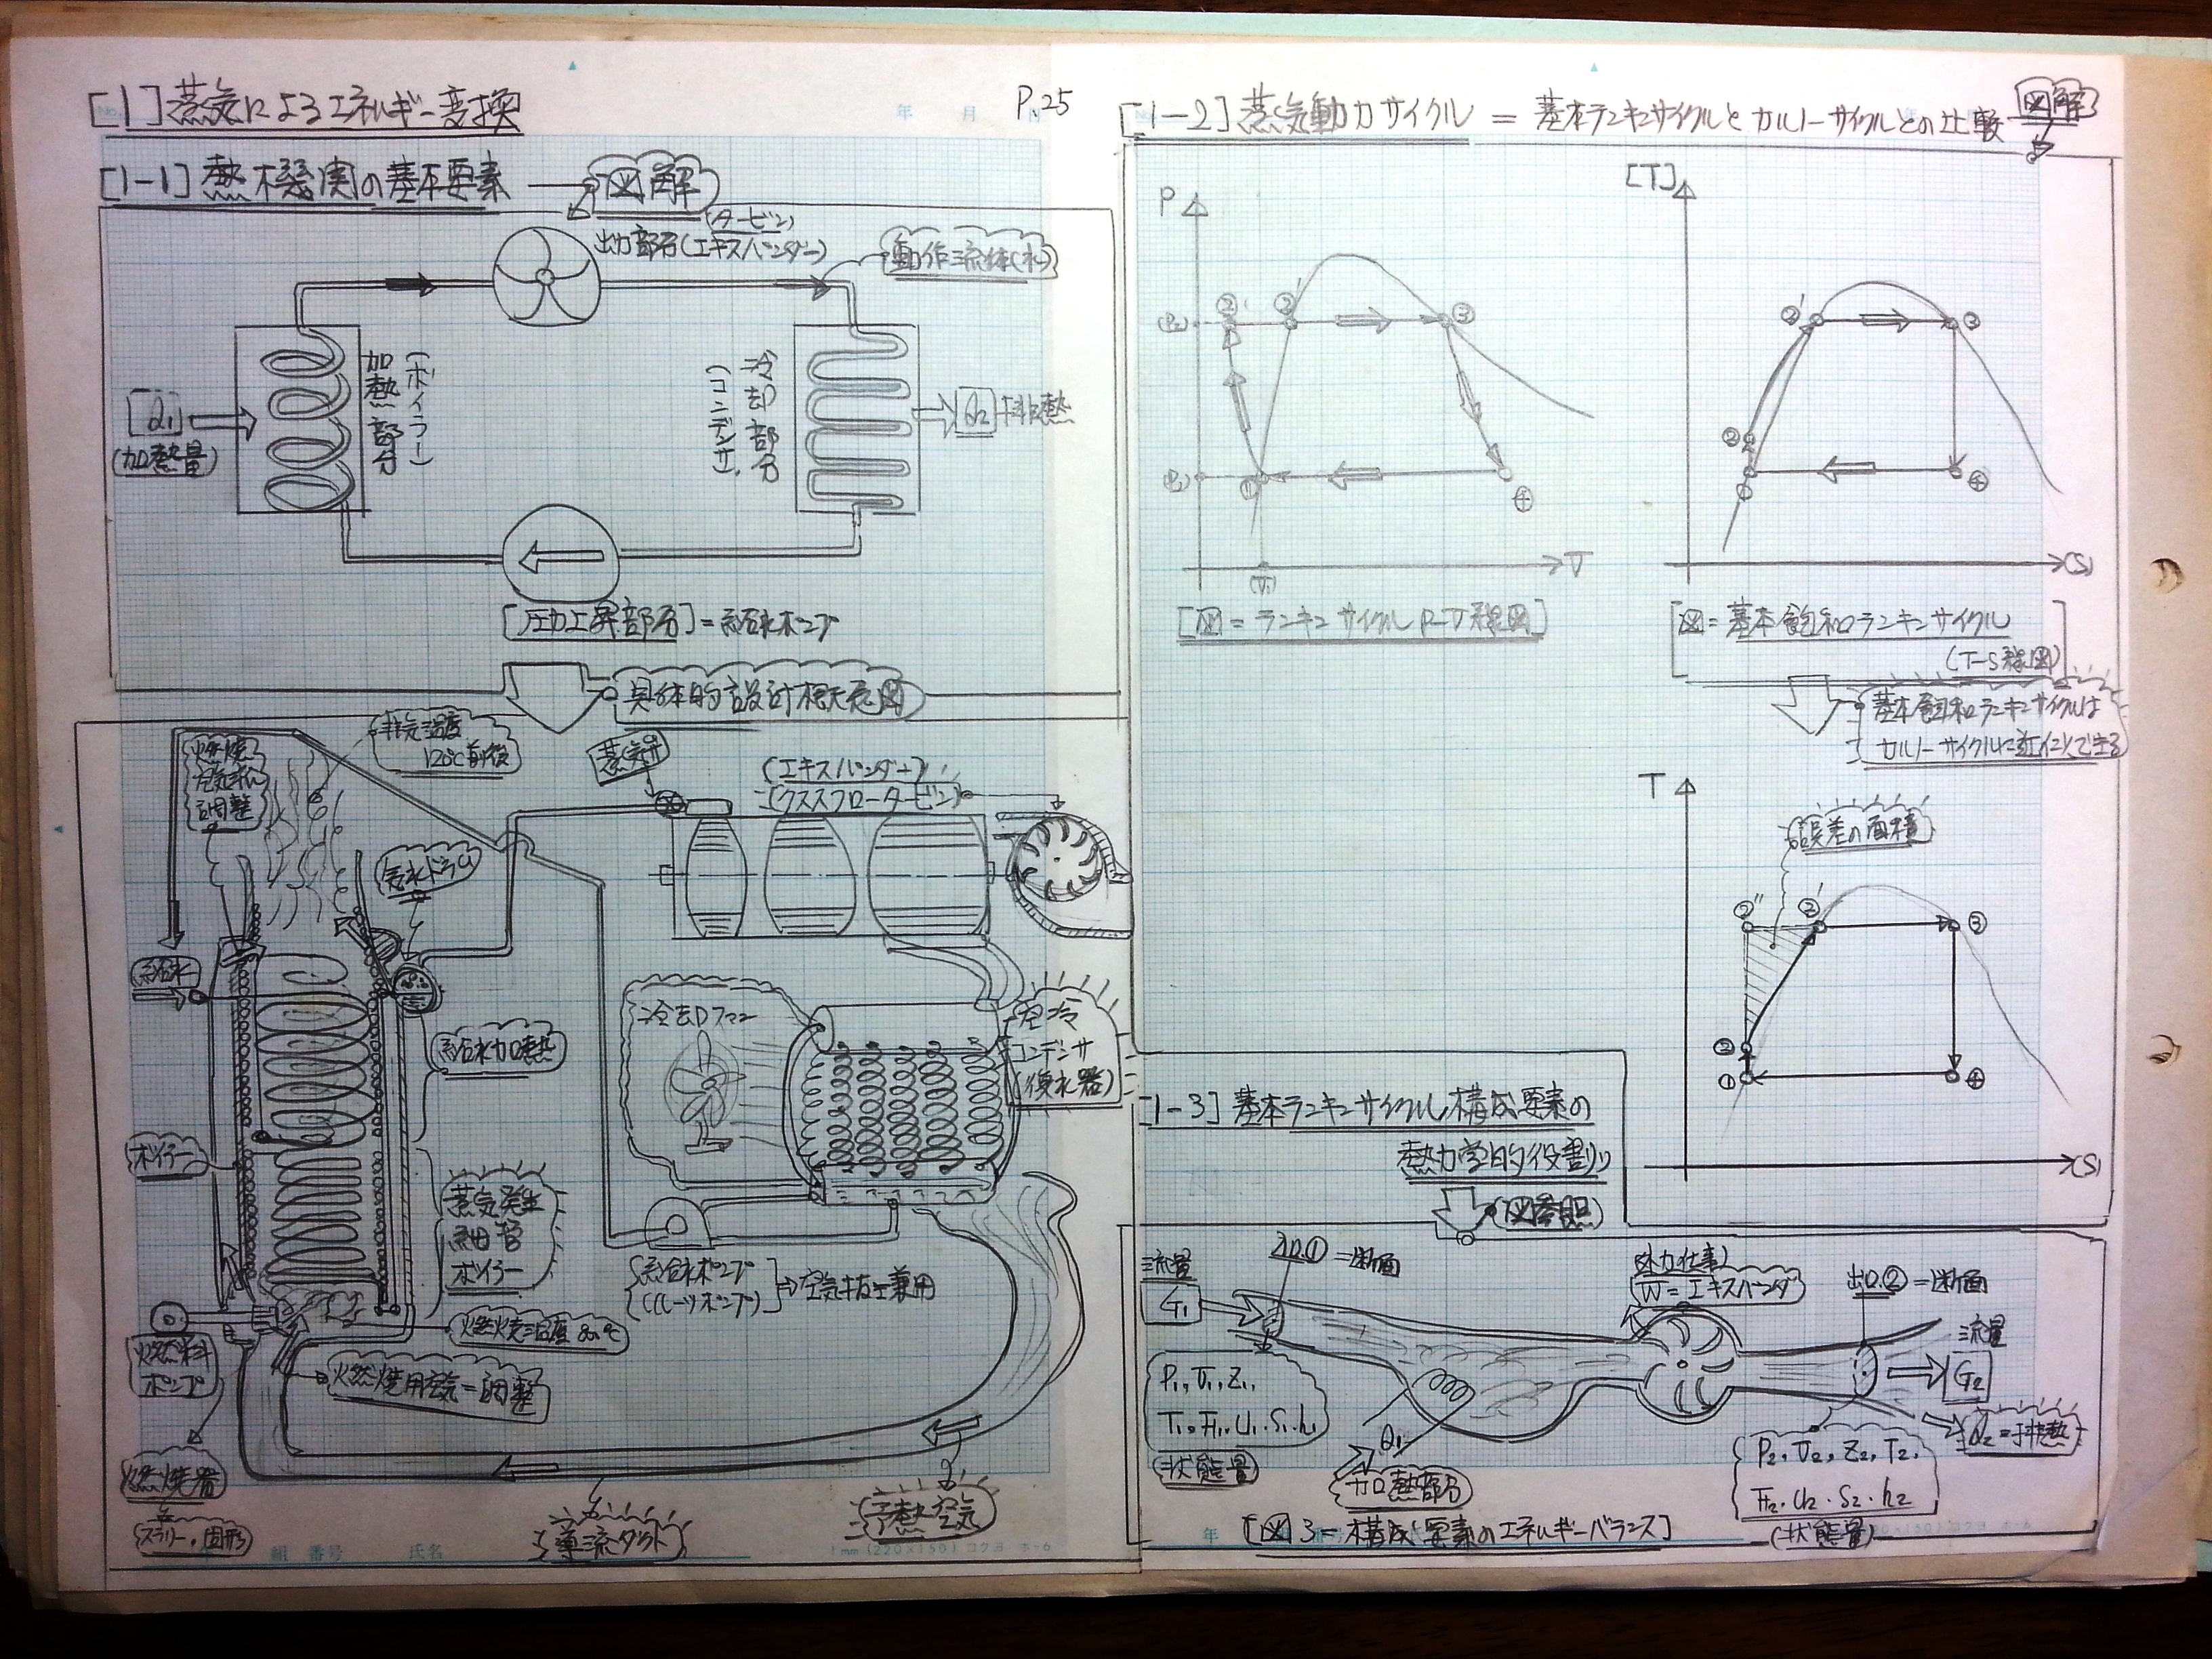 [1]蒸気によるエネルギー変換
P.25
[1-1]熱機関の基本要素
図解
(タービン)
出力部分(エキスパンダー)
動作流体(水)
加熱部分
(ボイラー)
冷却部分
(コンデンサ)
[Q1]
(加熱量)
[Q2]排熱
[圧力上昇部分]=給水ポンプ
具体的設計概念図
燃焼
空気流
調整
排気温度
120℃前後
蒸気弁
(エキスパンダー)
(クロスフロータービン)
気水ドラム
給水
冷却ファン
空冷
コンデンサ
(復水器)
給水加熱
ボイラー
蒸気発生
細管
ボイラー
給水ポンプ
(ルーツポンプ)
⇒空気抜き兼用
燃料
ポンプ
燃焼用空気=調整
燃焼器
スラリー、固形
導流ダクト
予熱空気
組 番号 氏名
1mm(220×150)コクヨ ホ-6
[1-2]蒸気動力サイクル = 基本ランキンサイクルとカルノーサイクルとの比較
図解
P
(P2)
(P1)
② ②' ③
① ④
(V1)
V
[図=ランキンサイクルP-V線図]
[T]
②' ③
②
① ④
(S)
[図=基本飽和ランキンサイクル
(T-S線図)]
基本飽和ランキンサイクルは
カルノーサイクルに近似できる
T
誤差の面積
2'' ②' ③
②
① ④
(S)
[1-3]基本ランキンサイクル構成要素の
熱力学的役割り
(図参照)
流量
G1
入口①=断面
外力仕事
W=エキスパンダ
出口②=断面
流量
G2
P1, V1, Z1,
T1, F1, U1, S1, h1
(状態量)
Q1
加熱部分
P2, V2, Z2, T2,
F2, U2, S2, h2
(状態量)
Q2=排熱
[図3=構成要素のエネルギーバランス]